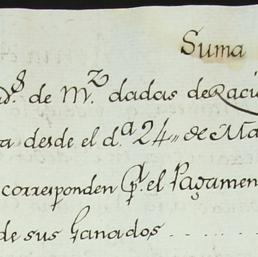 Suma
d.ˢ de M.ᶻ dadas de Raci
a desde el d.ª 24,, de Ma
corresponden p.ʳ el Pagamen
de sus Ganados . . . . . . .